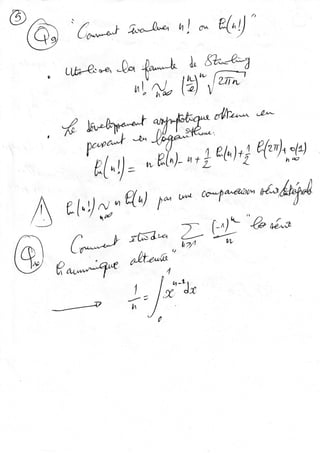 ⑤
Q9 "Comment évaluer n! ou ln(n!)"
• Utiliser la formule de Stirling
n! ~ n→∞ (n/e)^n √(2πn)
• Le développement asymptotique obtenu en
passant en logarithme.
ln(n!) = n ln(n) - n + 1/2 ln(n) + 1/2 ln(2π) + o(1) n→∞
⚠ ln(n!) ~ n→∞ n ln(n) par une comparaison série/intégrale
Q10 Comment étudier ∑ n≥1 (-1)^n/n "la série
harmonique alternée"
→ 1/n = ∫₀¹ x^(n-1) dx